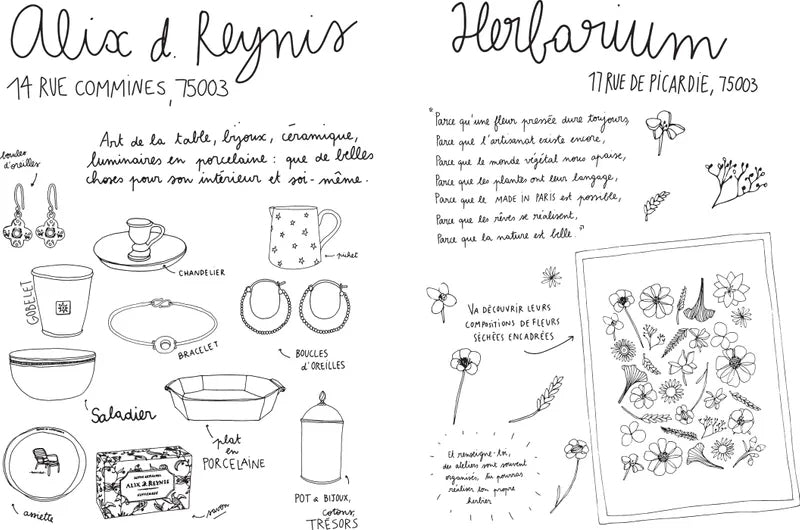 Alix d. Reynis
14 RUE COMMINES, 75003
Art de la table, bijoux, céramique,
luminaires en porcelaine : que de belles
choses pour son intérieur et soi-même.
boucles
d'oreilles
CHANDELIER
pichet
GOBELET
BRACELET
BOUCLES
d'OREILLES
Saladier
plat
en
PORCELAINE
assiette
ALIX d REYNIS
savon
POT à BIJOUX,
cotons,
TRÉSORS
Herbarium
17 RUE DE PICARDIE, 75003
"Parce qu'une fleur pressée dure toujours,
Parce que l'artisanat existe encore,
Parce que le monde végétal nous apaise,
Parce que les plantes ont leur langage,
Parce que le MADE IN PARIS est possible,
Parce que les rêves se réalisent,
Parce que la nature est belle."
VA DÉCOUVRIR LEURS
COMPOSITIONS DE FLEURS
SÉCHÉES ENCADRÉES
Et renseigne-toi,
des ateliers sont souvent
organisés, tu pourras
réaliser ton propre
herbier